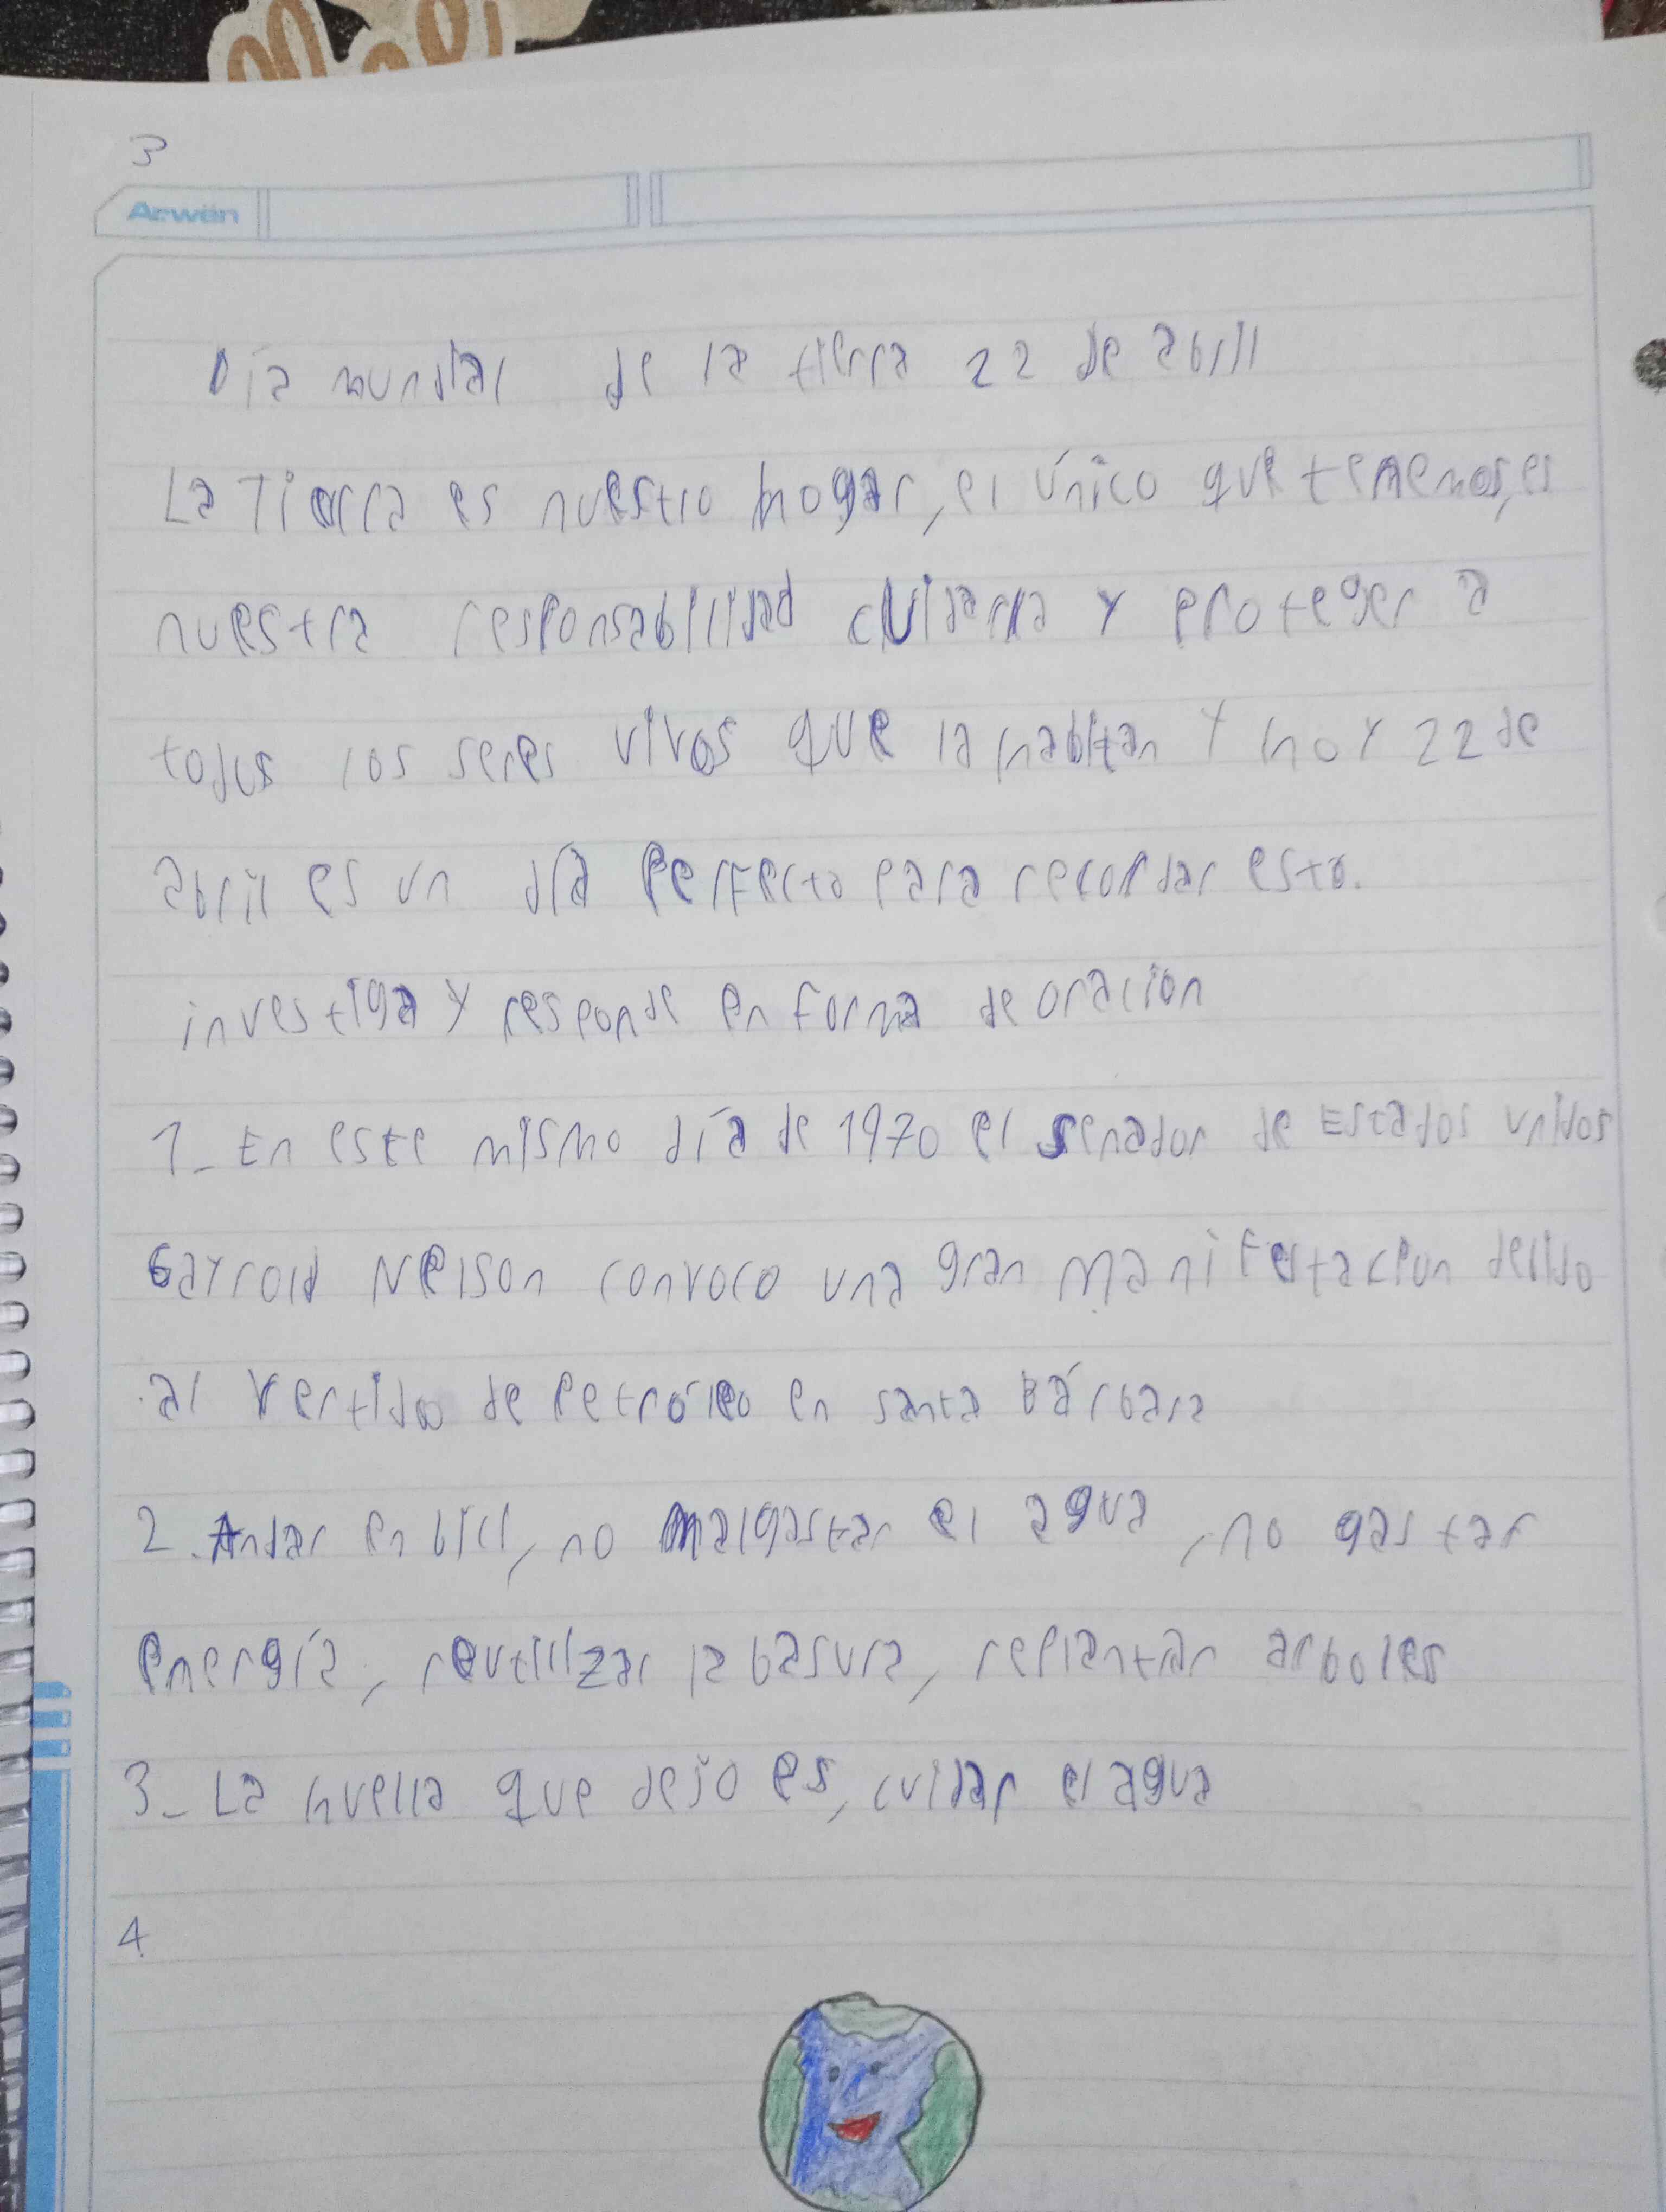 3
Arwën
Día mundial de la tierra 22 de abril
La Tierra es nuestro hogar, el único que tenemos, es
nuestra responsabilidad cuidarla y proteger a
todos los seres vivos que la habitan y hoy 22 de
abril es un día perfecto para recordar esto.
investiga y responde en forma de oración
1_ En este mismo día de 1970 el senador de Estados unidos
Gayrold Nelson convoco una gran manifestacion debido
al vertido de petróleo en santa Bárbara
2. Andar en bici, no malgastar el agua, no gastar
energía, reutilizar la basura, replantar arboles
3_ La huella que dejo es, cuidar el agua
4